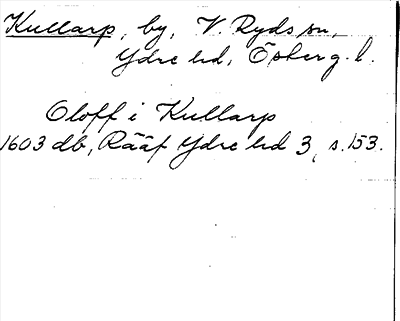 Kullarp, by, V. Ryds sn,
Ydre hd, Österg. l.
Oloff i Kullarp
1603 db, Rääf Ydre hd 3, s. 153.